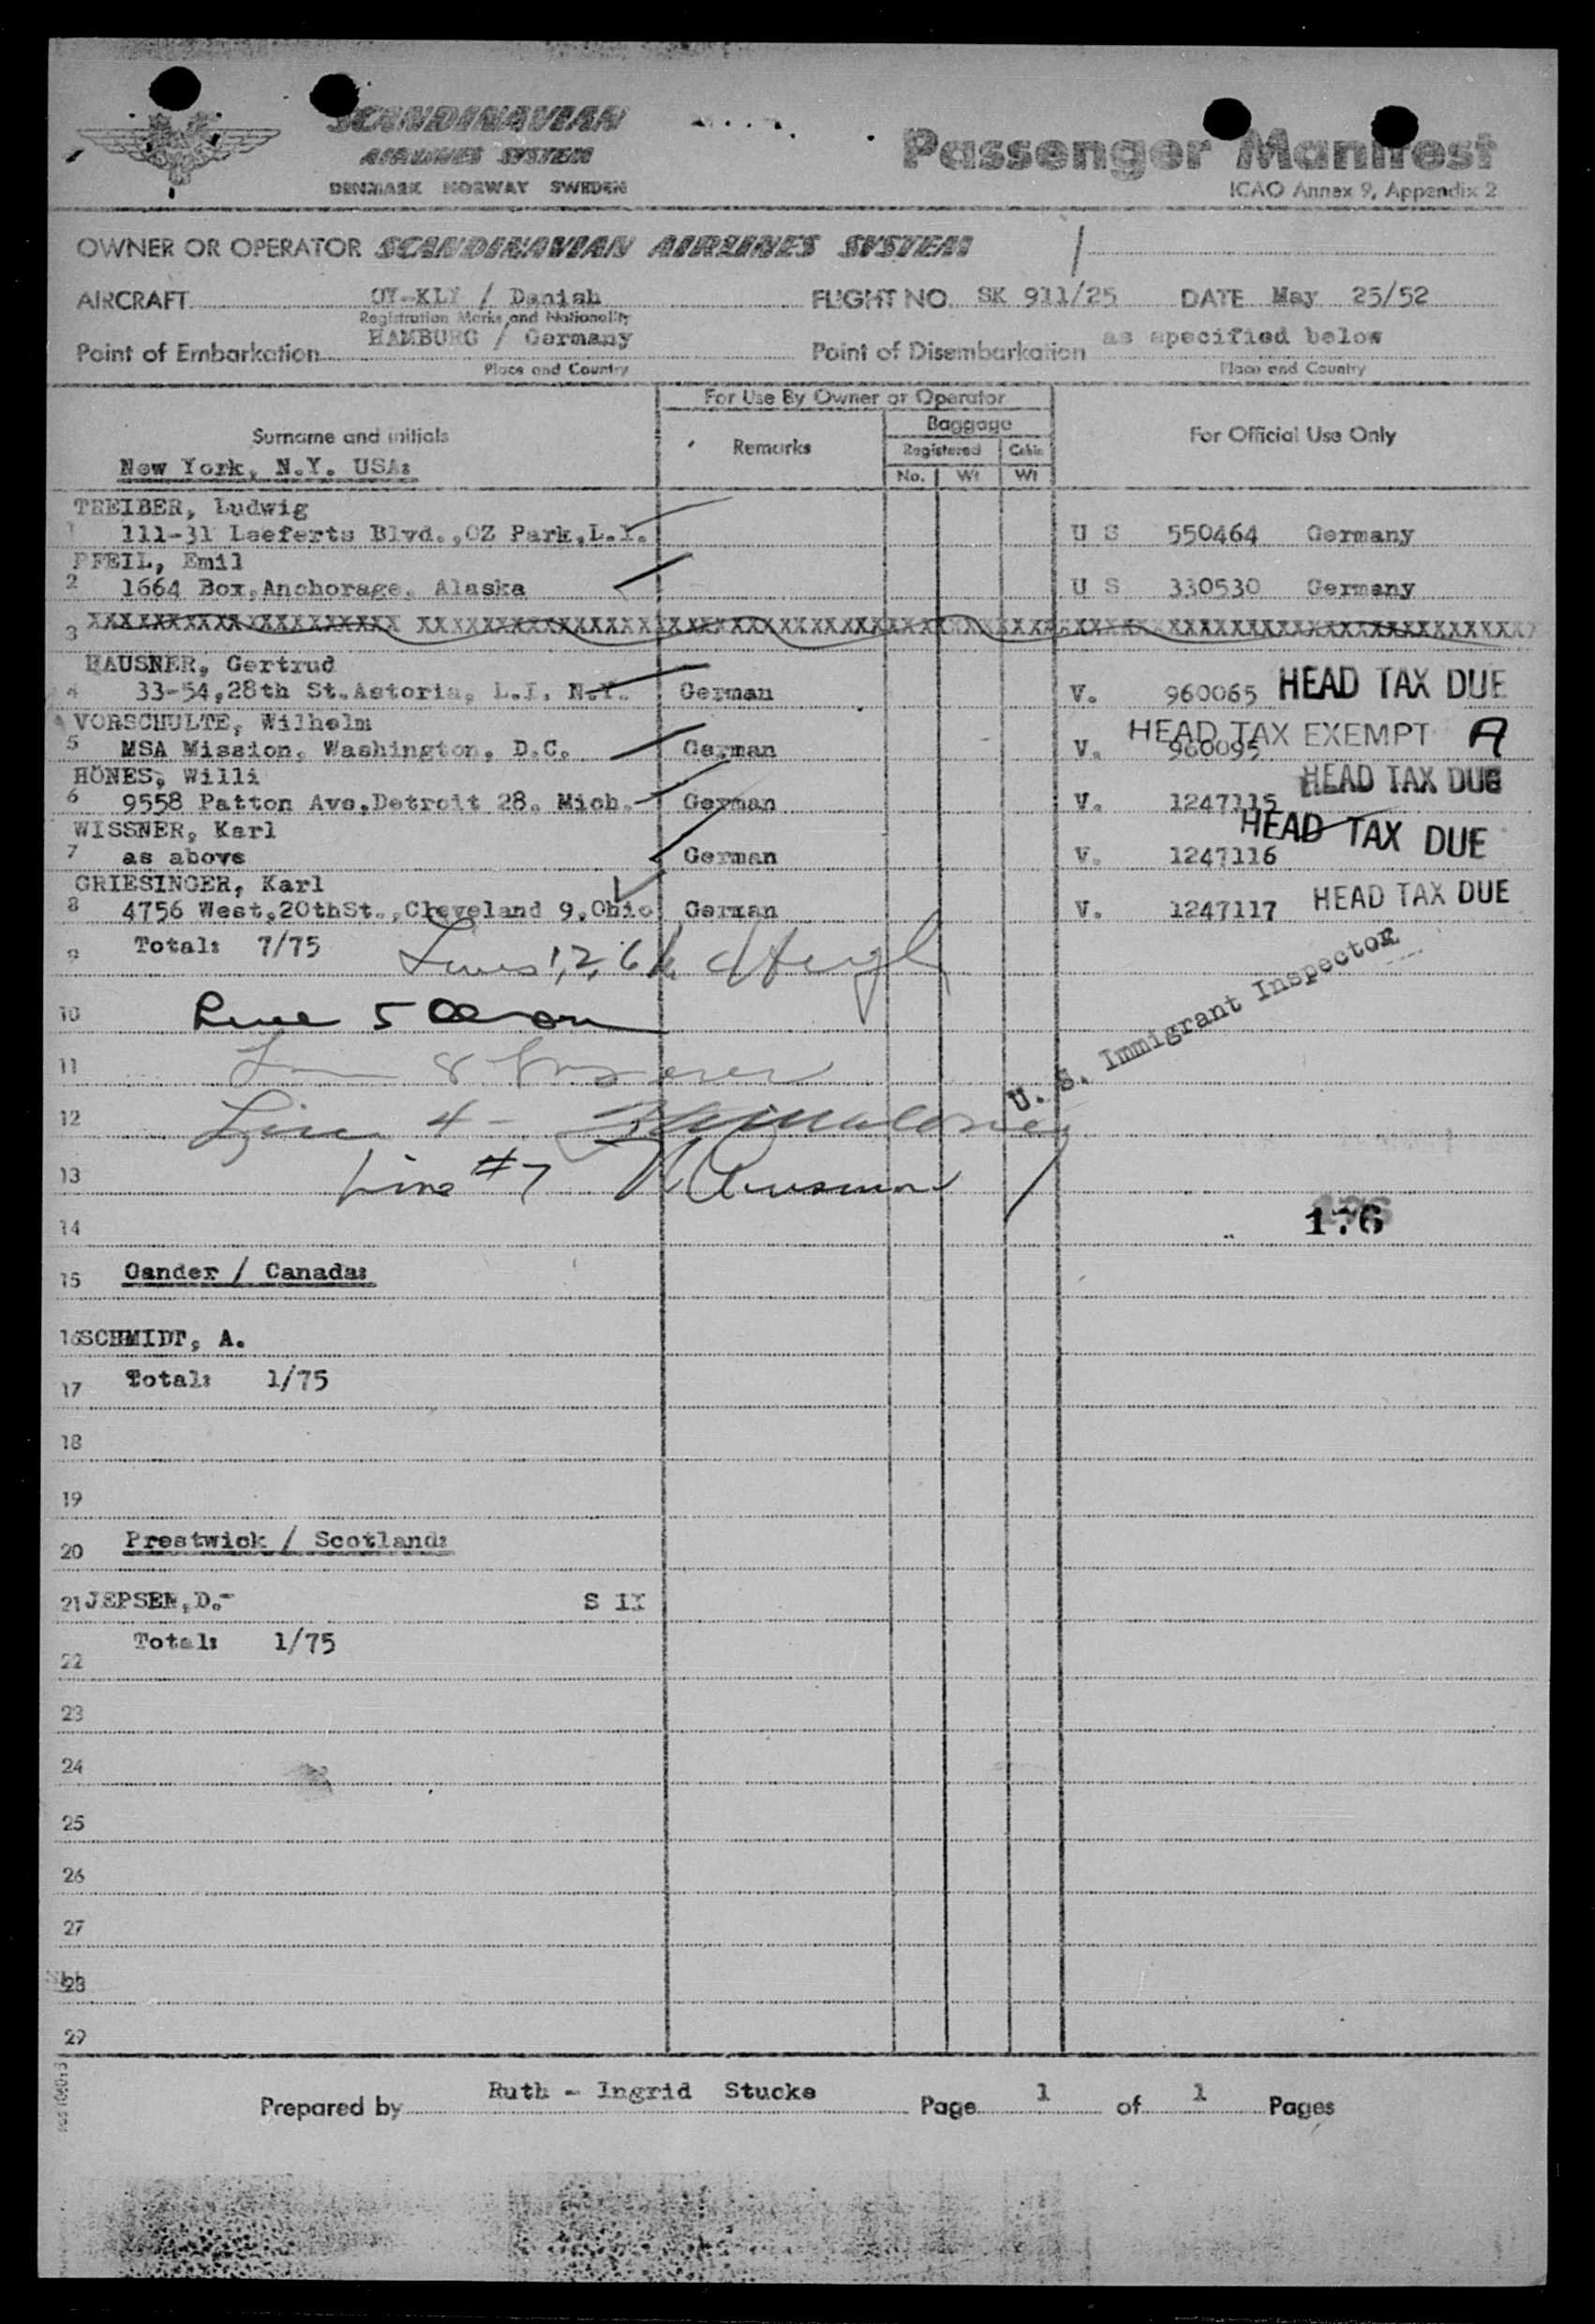 SCANDINAVIAN
AIRLINES SYSTEM
DENMARK NORWAY SWEDEN
Passenger Manifest
ICAO Annex 9, Appendix 2
OWNER OR OPERATOR SCANDINAVIAN AIRLINES SYSTEM
AIRCRAFT OY-KLY / Danish FLIGHT NO. SK 911/25 DATE May 25/52
Registration Marks and Nationality
Point of Embarkation HAMBURG / Germany Point of Disembarkation as specified below
Place and Country Place and Country
For Use By Owner or Operator
Surname and initials Remarks Baggage For Official Use Only
Registered Cabin
New York, N.Y. USA: No. Wt Wt
TREIBER, Ludwig
1 111-31 Leeferts Blvd.,OZ Park,L.I. U S 550464 Germany
PFEIL, Emil
2 1664 Box,Anchorage, Alaska U S 330530 Germany
3
HAUSNER, Gertrud
4 33-54,28th St.Astoria, L.I. N.Y. German V. 960065 HEAD TAX DUE
VORSCHULTE, Wilhelm
5 MSA Mission, Washington, D.C. German V. 960095 HEAD TAX EXEMPT A
HÖNES, Willi
6 9558 Patton Ave,Detroit 28. Mich. German V. 1247115 HEAD TAX DUE
WISSNER, Karl
7 as above German V. 1247116 HEAD TAX DUE
GRIESINGER, Karl
8 4756 West,20thSt.,Cleveland 9,Ohio German V. 1247117 HEAD TAX DUE
9 Total: 7/75 Lines 1,2,6
10 Line 5 Olson
11 Line 8
12 Line 4 - Maloney
U. S. Immigrant Inspector
13 Line #7
14 176
15 Gander / Canada:
16 SCHMIDT, A.
17 Total: 1/75
18
19
20 Prestwick / Scotland:
21 JEPSEN,D.- S II
22 Total: 1/75
23
24
25
26
27
28
29
Prepared by Ruth - Ingrid Stucke Page 1 of 1 Pages